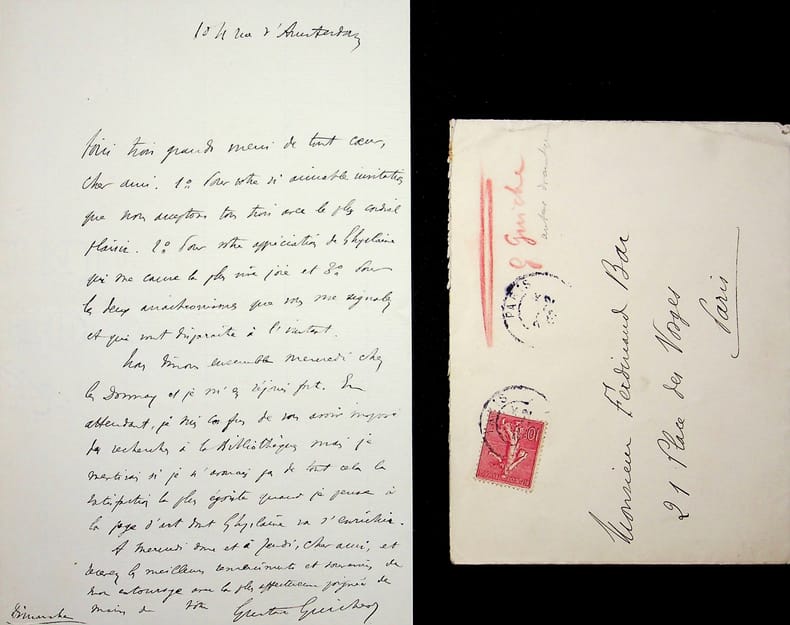 104 rue d'Amsterdam
Voici trois grands merci de tout cœur,
cher ami. 1º Pour votre si aimable invitation
que nous acceptons tous trois avec le plus cordial
plaisir. 2º Pour votre appréciation de Ghyslaine
qui me cause la plus vive joie et 3º Pour
les deux anachronismes que vous me signalez
et qui vont disparaître à l'instant.
Nous dînons ensemble mercredi chez
les Donnay et je m'en réjouis fort. En
attendant, je suis confus de vous avoir imposé
des recherches à la Bibliothèque mais je
mentirais si je n'avouais pas de tout cela la
satisfaction la plus égoïste quand je pense à
la page d'art dont Ghyslaine va s'enrichir.
A mercredi donc et à Jeudi, cher ami, et
les meilleurs compliments et souvenirs de
mon entourage avec la plus affectueuse poignée de
mains de votre
Gustave Guiches
Dimanche
G Guiche
auteur dramatique
PARIS
10c
Monsieur Ferdinand Bac
21 Place des Vosges
Paris